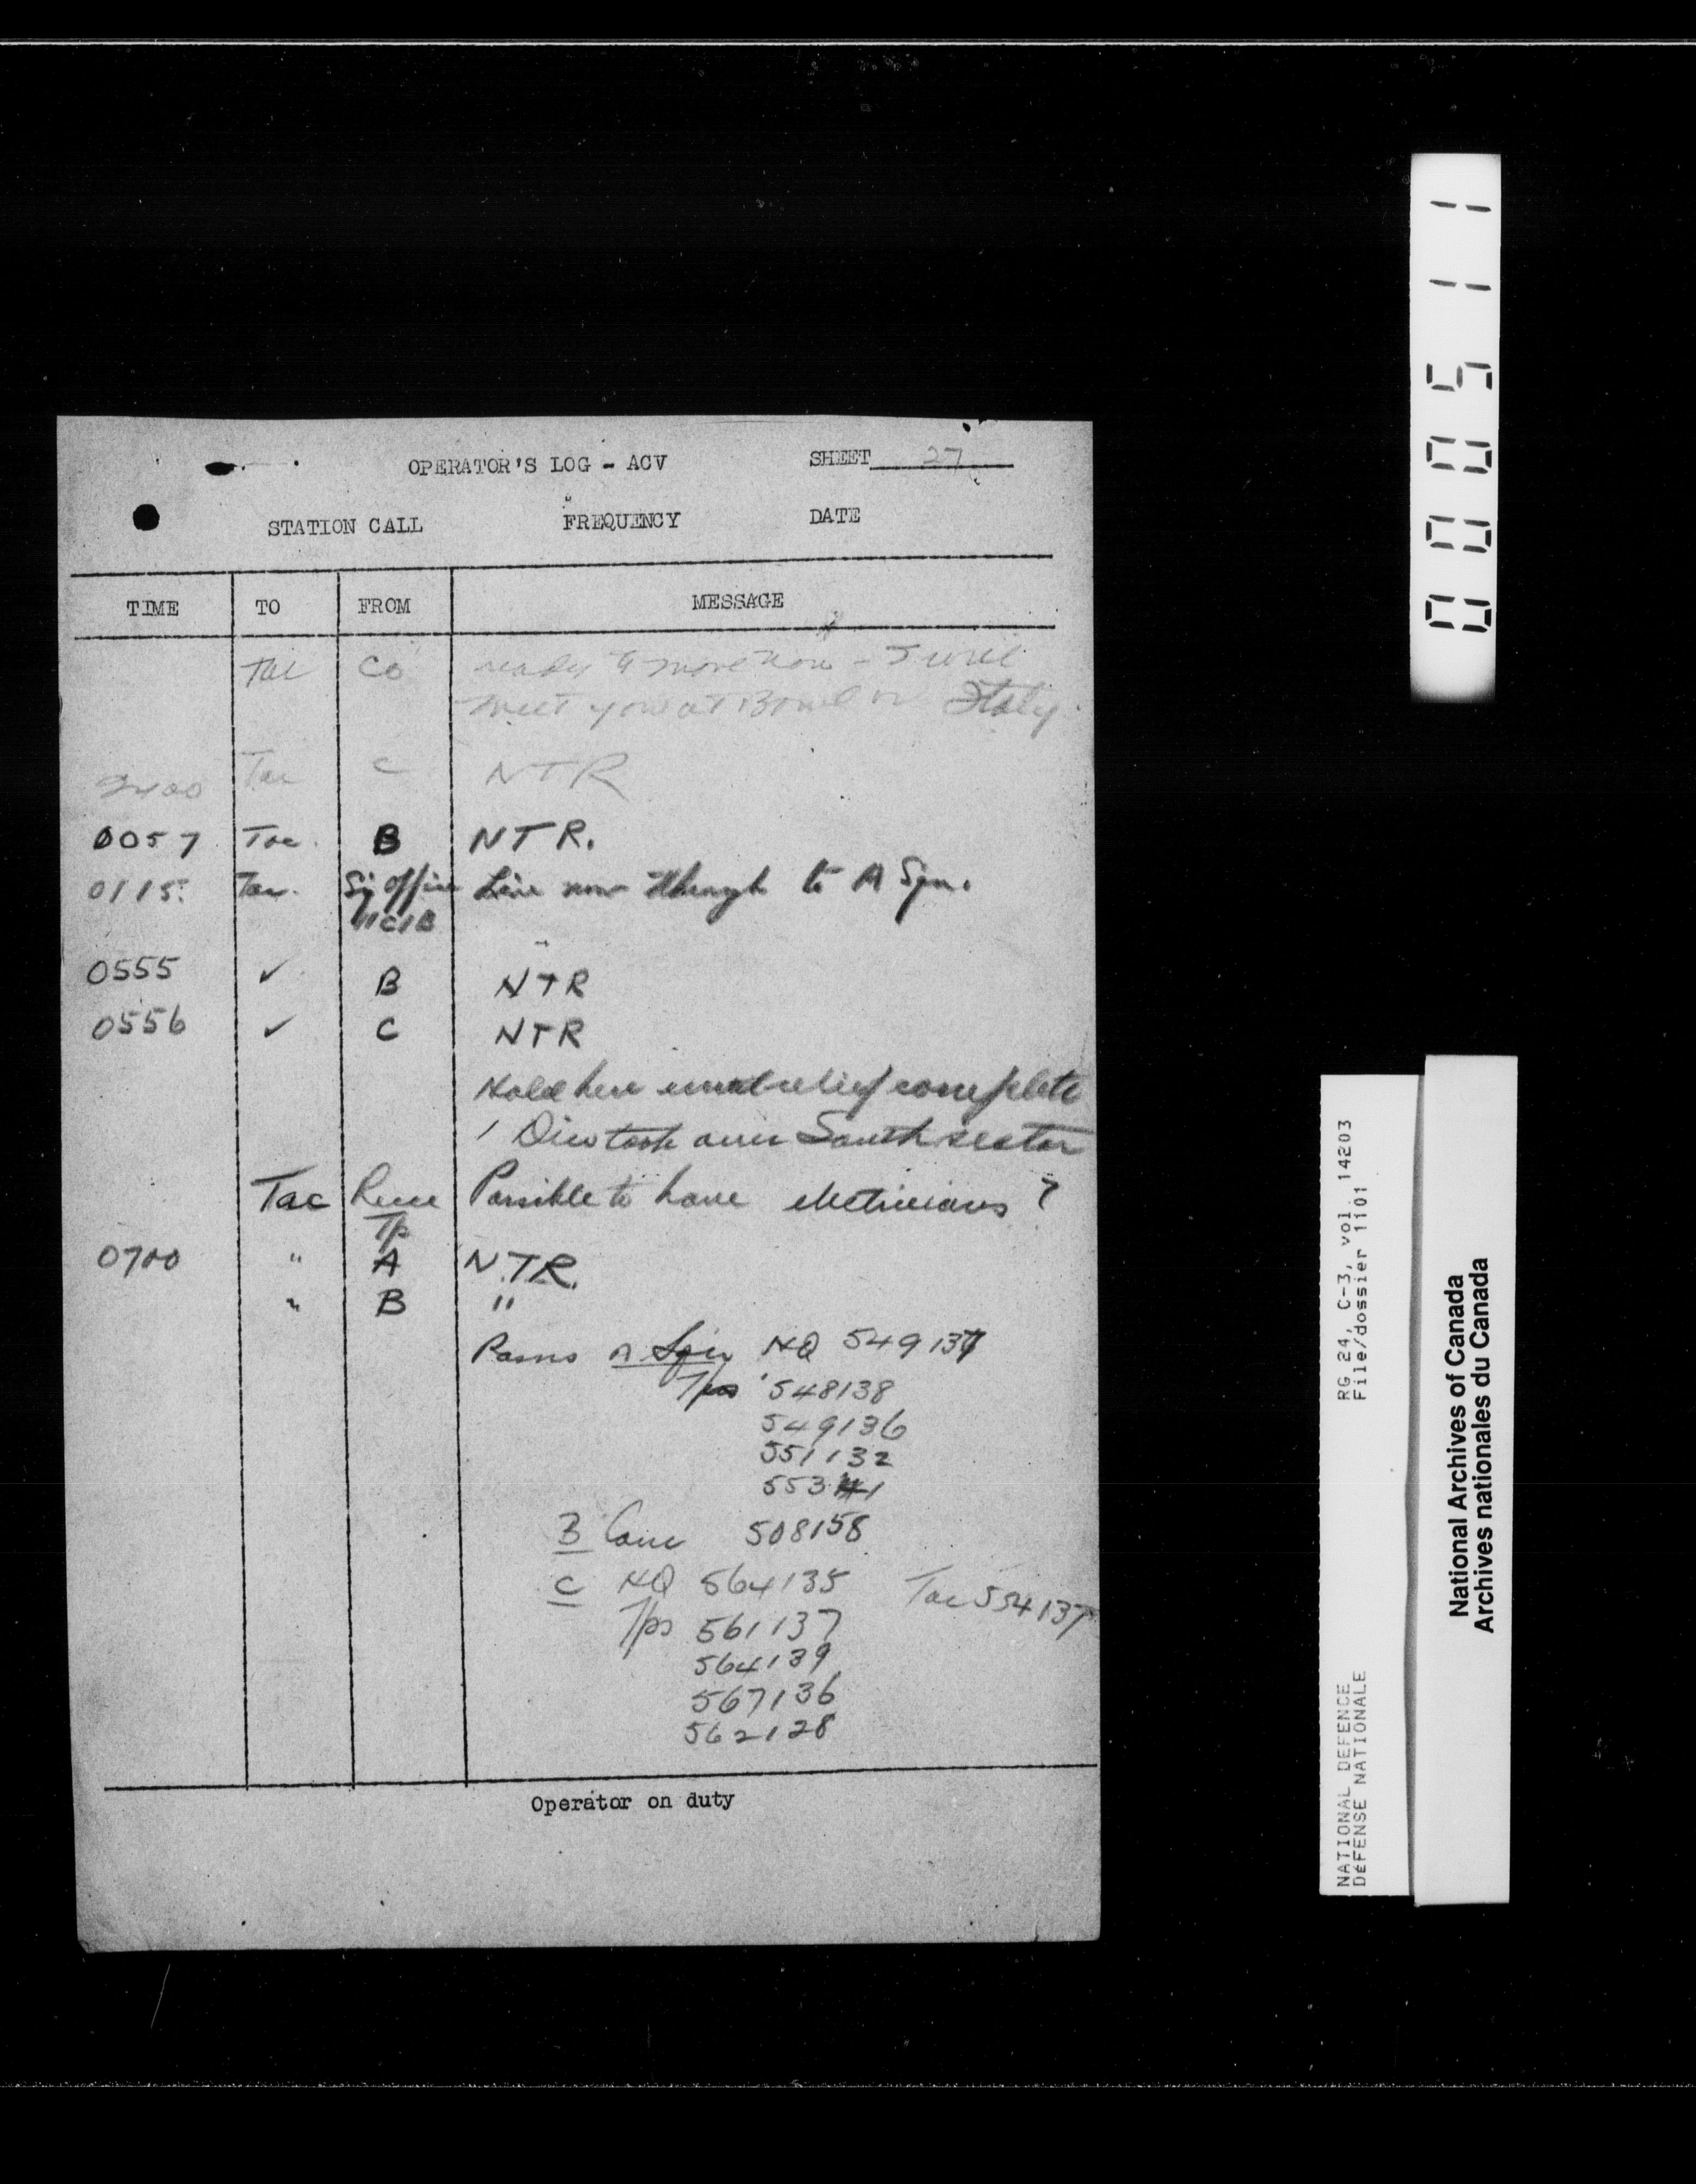 OPERATOR'S LOG - ACV SHEET 27
STATION CALL FREQUENCY DATE
TIME TO FROM MESSAGE
Tac CO ready to move now - I will
meet you at on Italy
2400 Tac C NTR
0057 Tac. B NTR.
0115 Tac. Sig office Line now through to A Sqn.
0555 ✓ B NTR
0556 ✓ C NTR
Hold here until relief complete
1 Div took over South sector
Tac Recce Possible to have electricians?
Tp
0700 " A NTR.
" B "
Posns A Sqn HQ 549137
Tps 548138
549136
551132
553141
B Conc 508158
C HQ 564135 Tac 554137
Tps 561137
564139
567136
562128
Operator on duty
000511
RG 24, C-3, vol. 14203
File/dossier 1101
NATIONAL DEFENCE
DÉFENSE NATIONALE
National Archives of Canada
Archives nationales du Canada